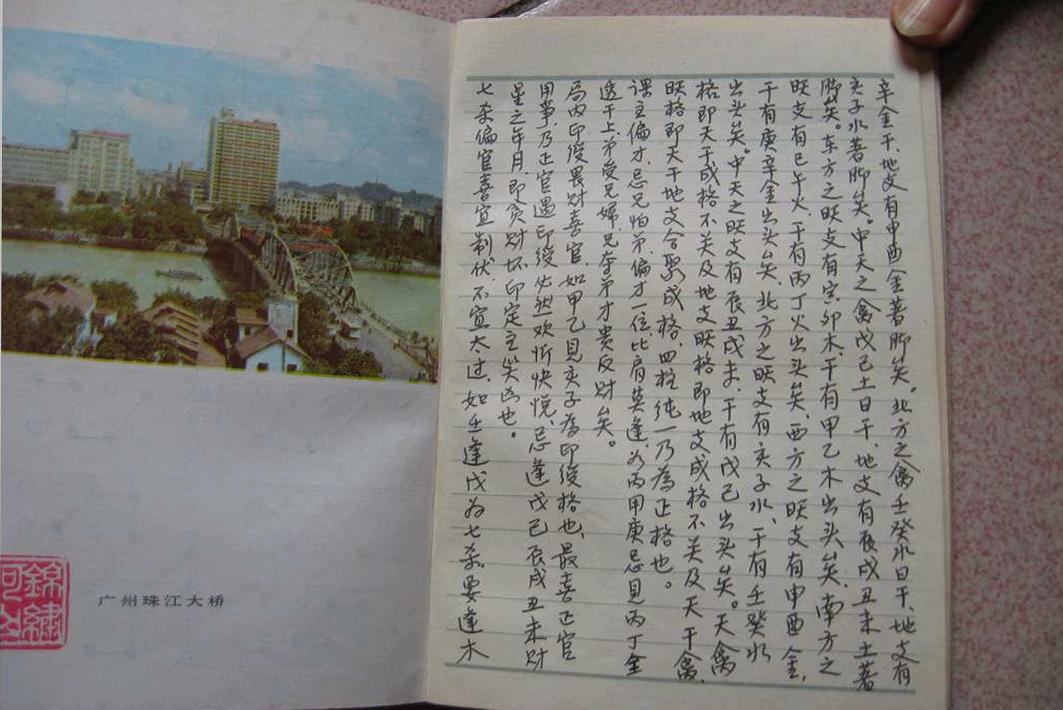 辛金干、地支有申酉金著脚矣。北方之禽壬癸水日干、地支有
亥子水著脚矣。中天之禽戊己土日干、地支有辰戌丑未土著
脚矣。东方之旺支有寅卯木、干有甲乙木出头矣、南方之
旺支有巳午火、干有丙丁火出头矣、西方之旺支有申酉金,
干有庚辛金出头矣、北方之旺支有亥子水、干有壬癸水
出头矣。中天之旺支有辰丑戌未、干有戊己出头矣。天禽
格即天干成格不关及地支旺格即地支成格不关及天干禽、
旺格即天干地支合聚成格、四柱纯一乃為正格也。
课主偏才、忌兄怕弟偏才一位、比肩莫逢、如丙用庚忌見丙丁全
透干上、弟受兄婦、兄夺弟才贵反财矣。
局内印绶畏財喜官、如甲乙見亥子為印绶格也、最喜正官
用事、乃正官遇印绶必然欢忻快悦、忌逢戊己辰戌丑未財
星之年月、即贪財坏印定主災凶也。
七杀偏官喜宜制伏、不宜太过、如壬逢戊为七杀要逢木
广州珠江大桥
錦繡
河山